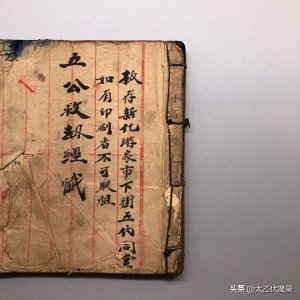 板存新化游家市下街五代同堂
如有印刷者不可取租
五公救刼經懺
头条 @太乙伏魔录